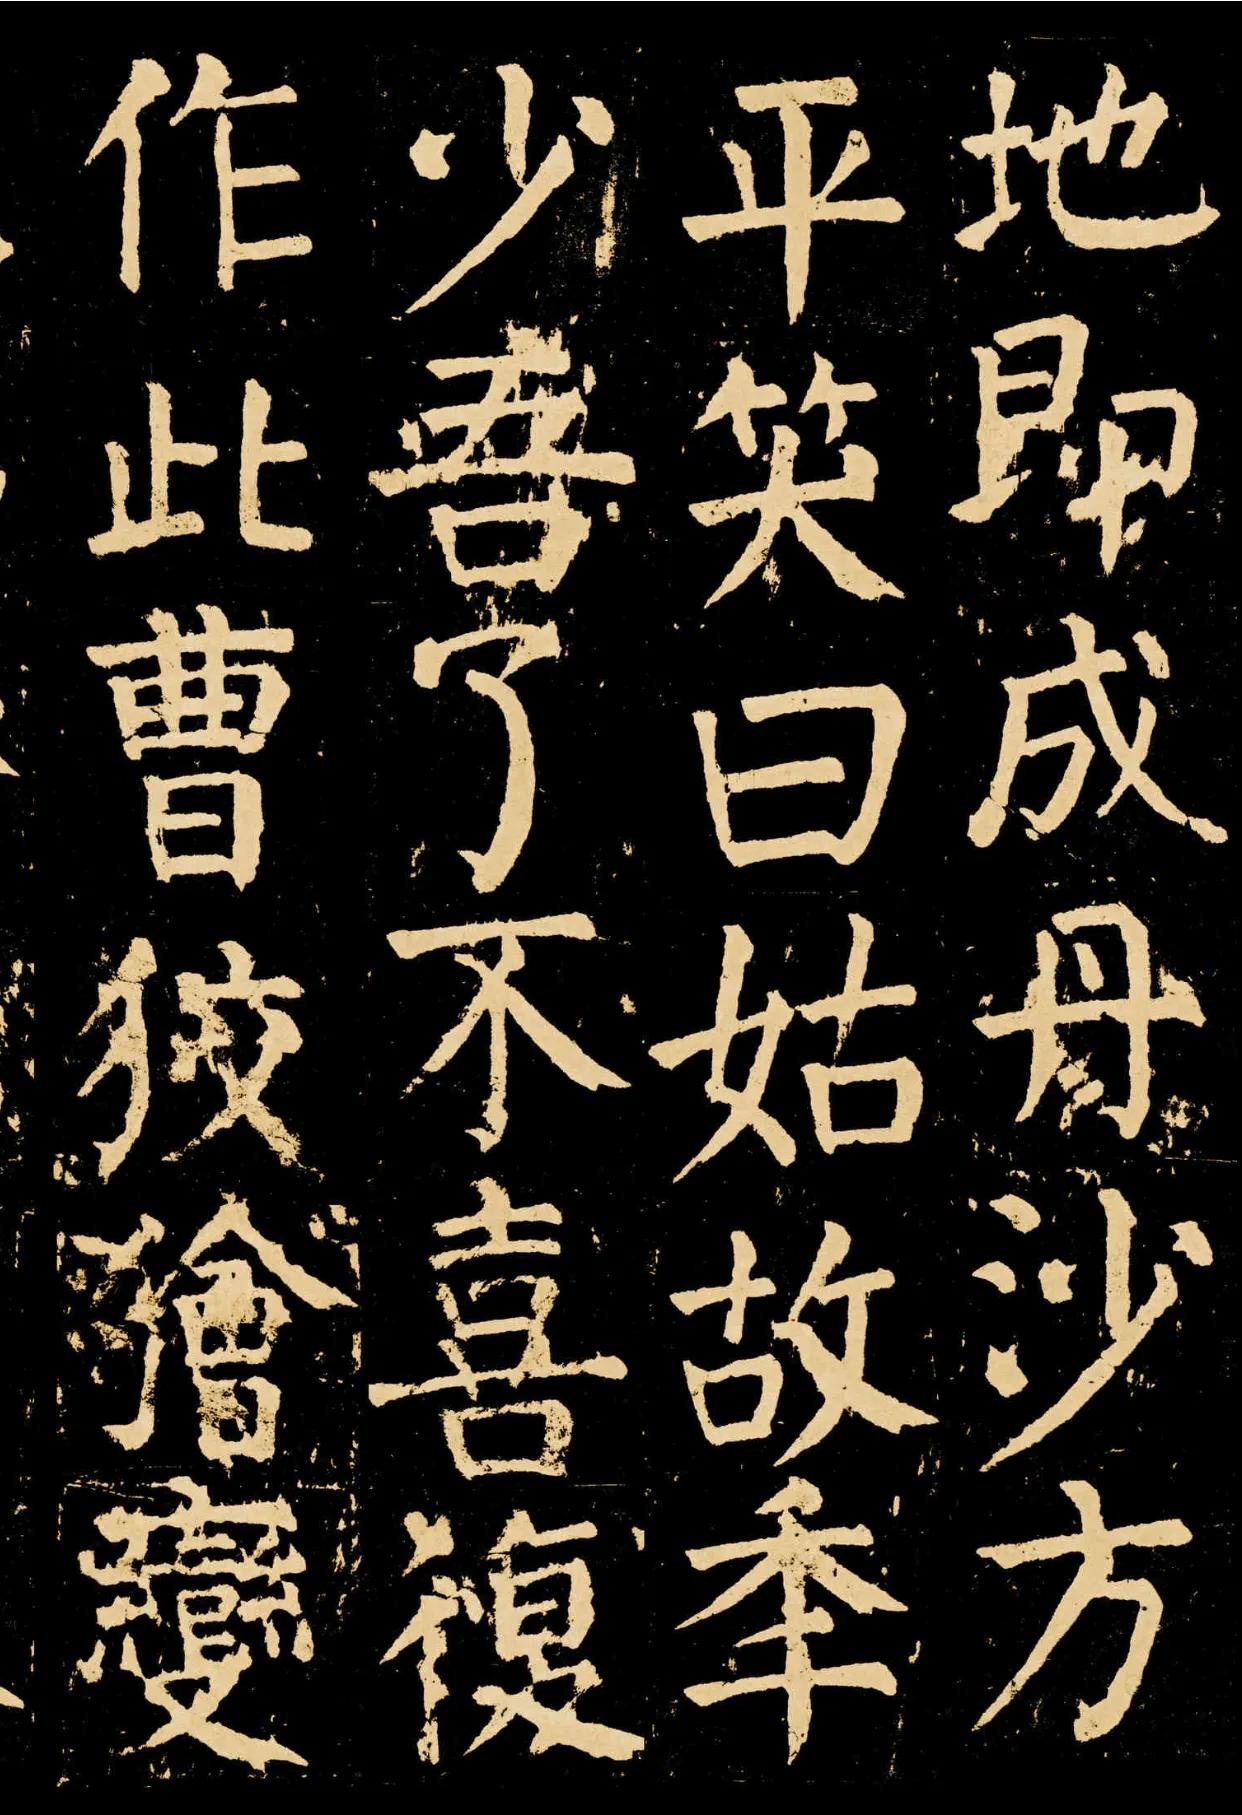 地即成丹沙方
平笑曰姑故秊
少吾了不喜復
作此曹狡獪變